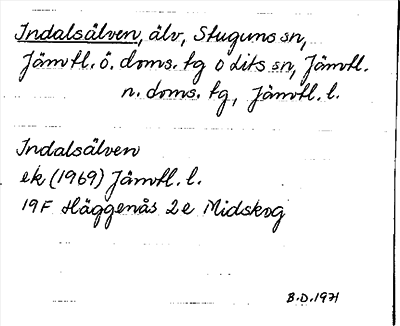 Indalsälven, älv, Stuguns sn,
Jämtl. ö. doms. tg o Lits sn, Jämtl.
n. doms. tg, Jämtl. l.
Indalsälven
ek (1969) Jämtl. l.
19F Häggenås 2e Midskog
B.D. 1971